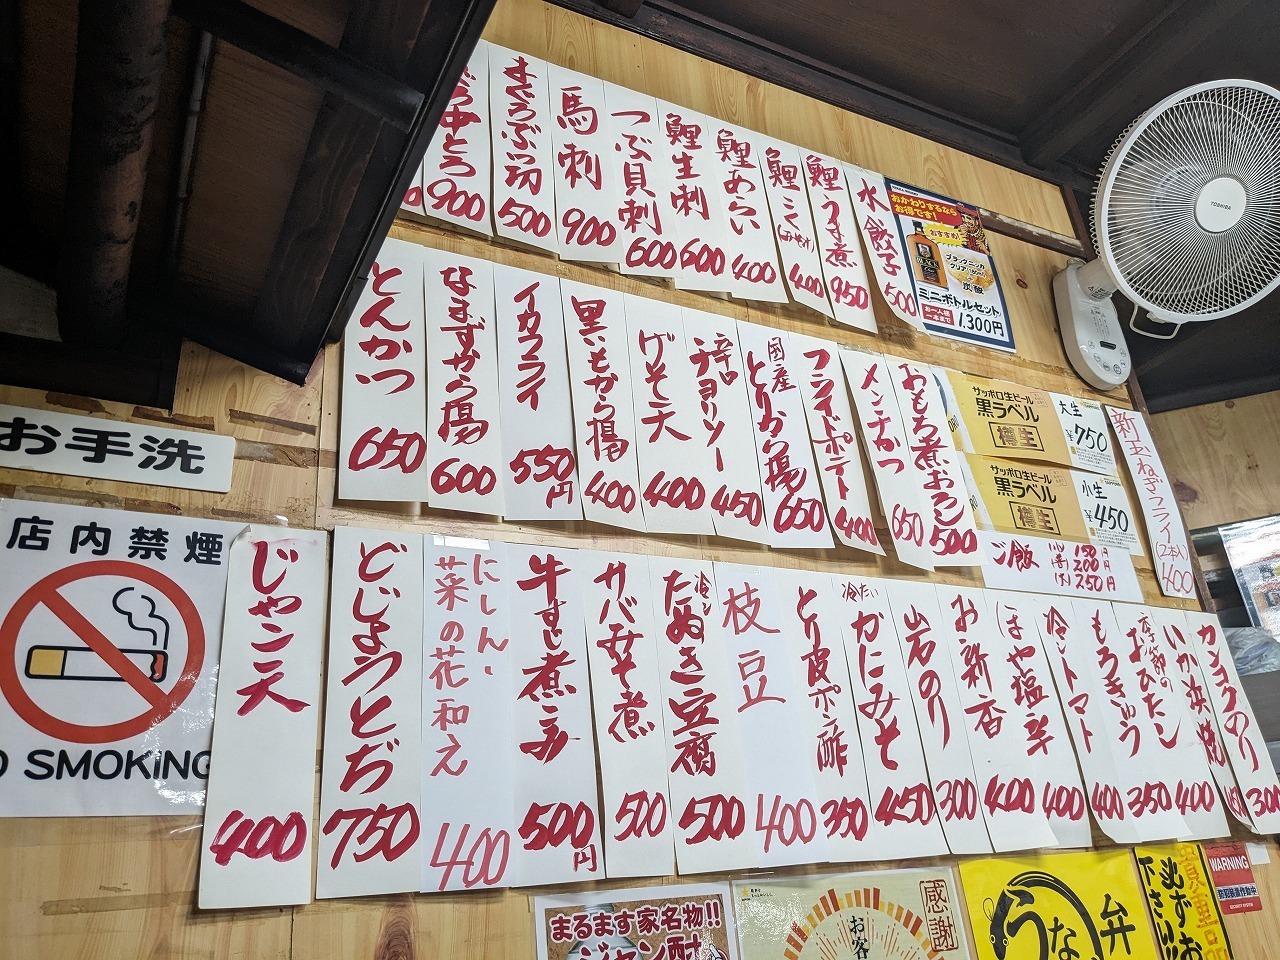 中とろ 900
まぐろぶつ切 500
馬刺 900
つぶ貝刺 600
鯉生刺 600
鯉あらい 400
鯉こく(みそ汁) 400
鯉うま煮 950
水餃子 500
おかわりするなら
お得です!
おすすめ!
ブラックニッカ
クリア
炭酸
ミニボトルセット
お一人様
一本まで
1,300円
TOSHIBA
とんかつ 650
なまずから揚 600
イカフライ 550円
里いもから揚 400
げそ天 400
辛口チョリソー 450
国産とりから揚 650
フライドポテト 400
メンチかつ 650
おもち煮おろし 500
サッポロ生ビール
黒ラベル
樽生
大生
¥750
サッポロ生ビール
黒ラベル
樽生
小生
¥450
ご飯
150円
200円
250円
新玉ねぎフライ(2本入) 400
お手洗
店内禁煙
SMOKING
じゃこ天 400
どじょうとぢ 750
にしん・菜の花和え 400
牛すじ煮こみ 500円
サバみそ煮 500
冷シたぬき豆腐 500
枝豆 400
とり皮ポン酢 350
冷たいかにみそ 450
岩のり 300
お新香 400
ほや塩辛 400
冷トマト 400
もろきゅう 400
季節のおひたし 350
いか浜焼 400
カンコクのり 300
まるます家名物!!
ジャン酎
感謝
お客
うな
弁
下さい
WARNING
防犯装置作動中